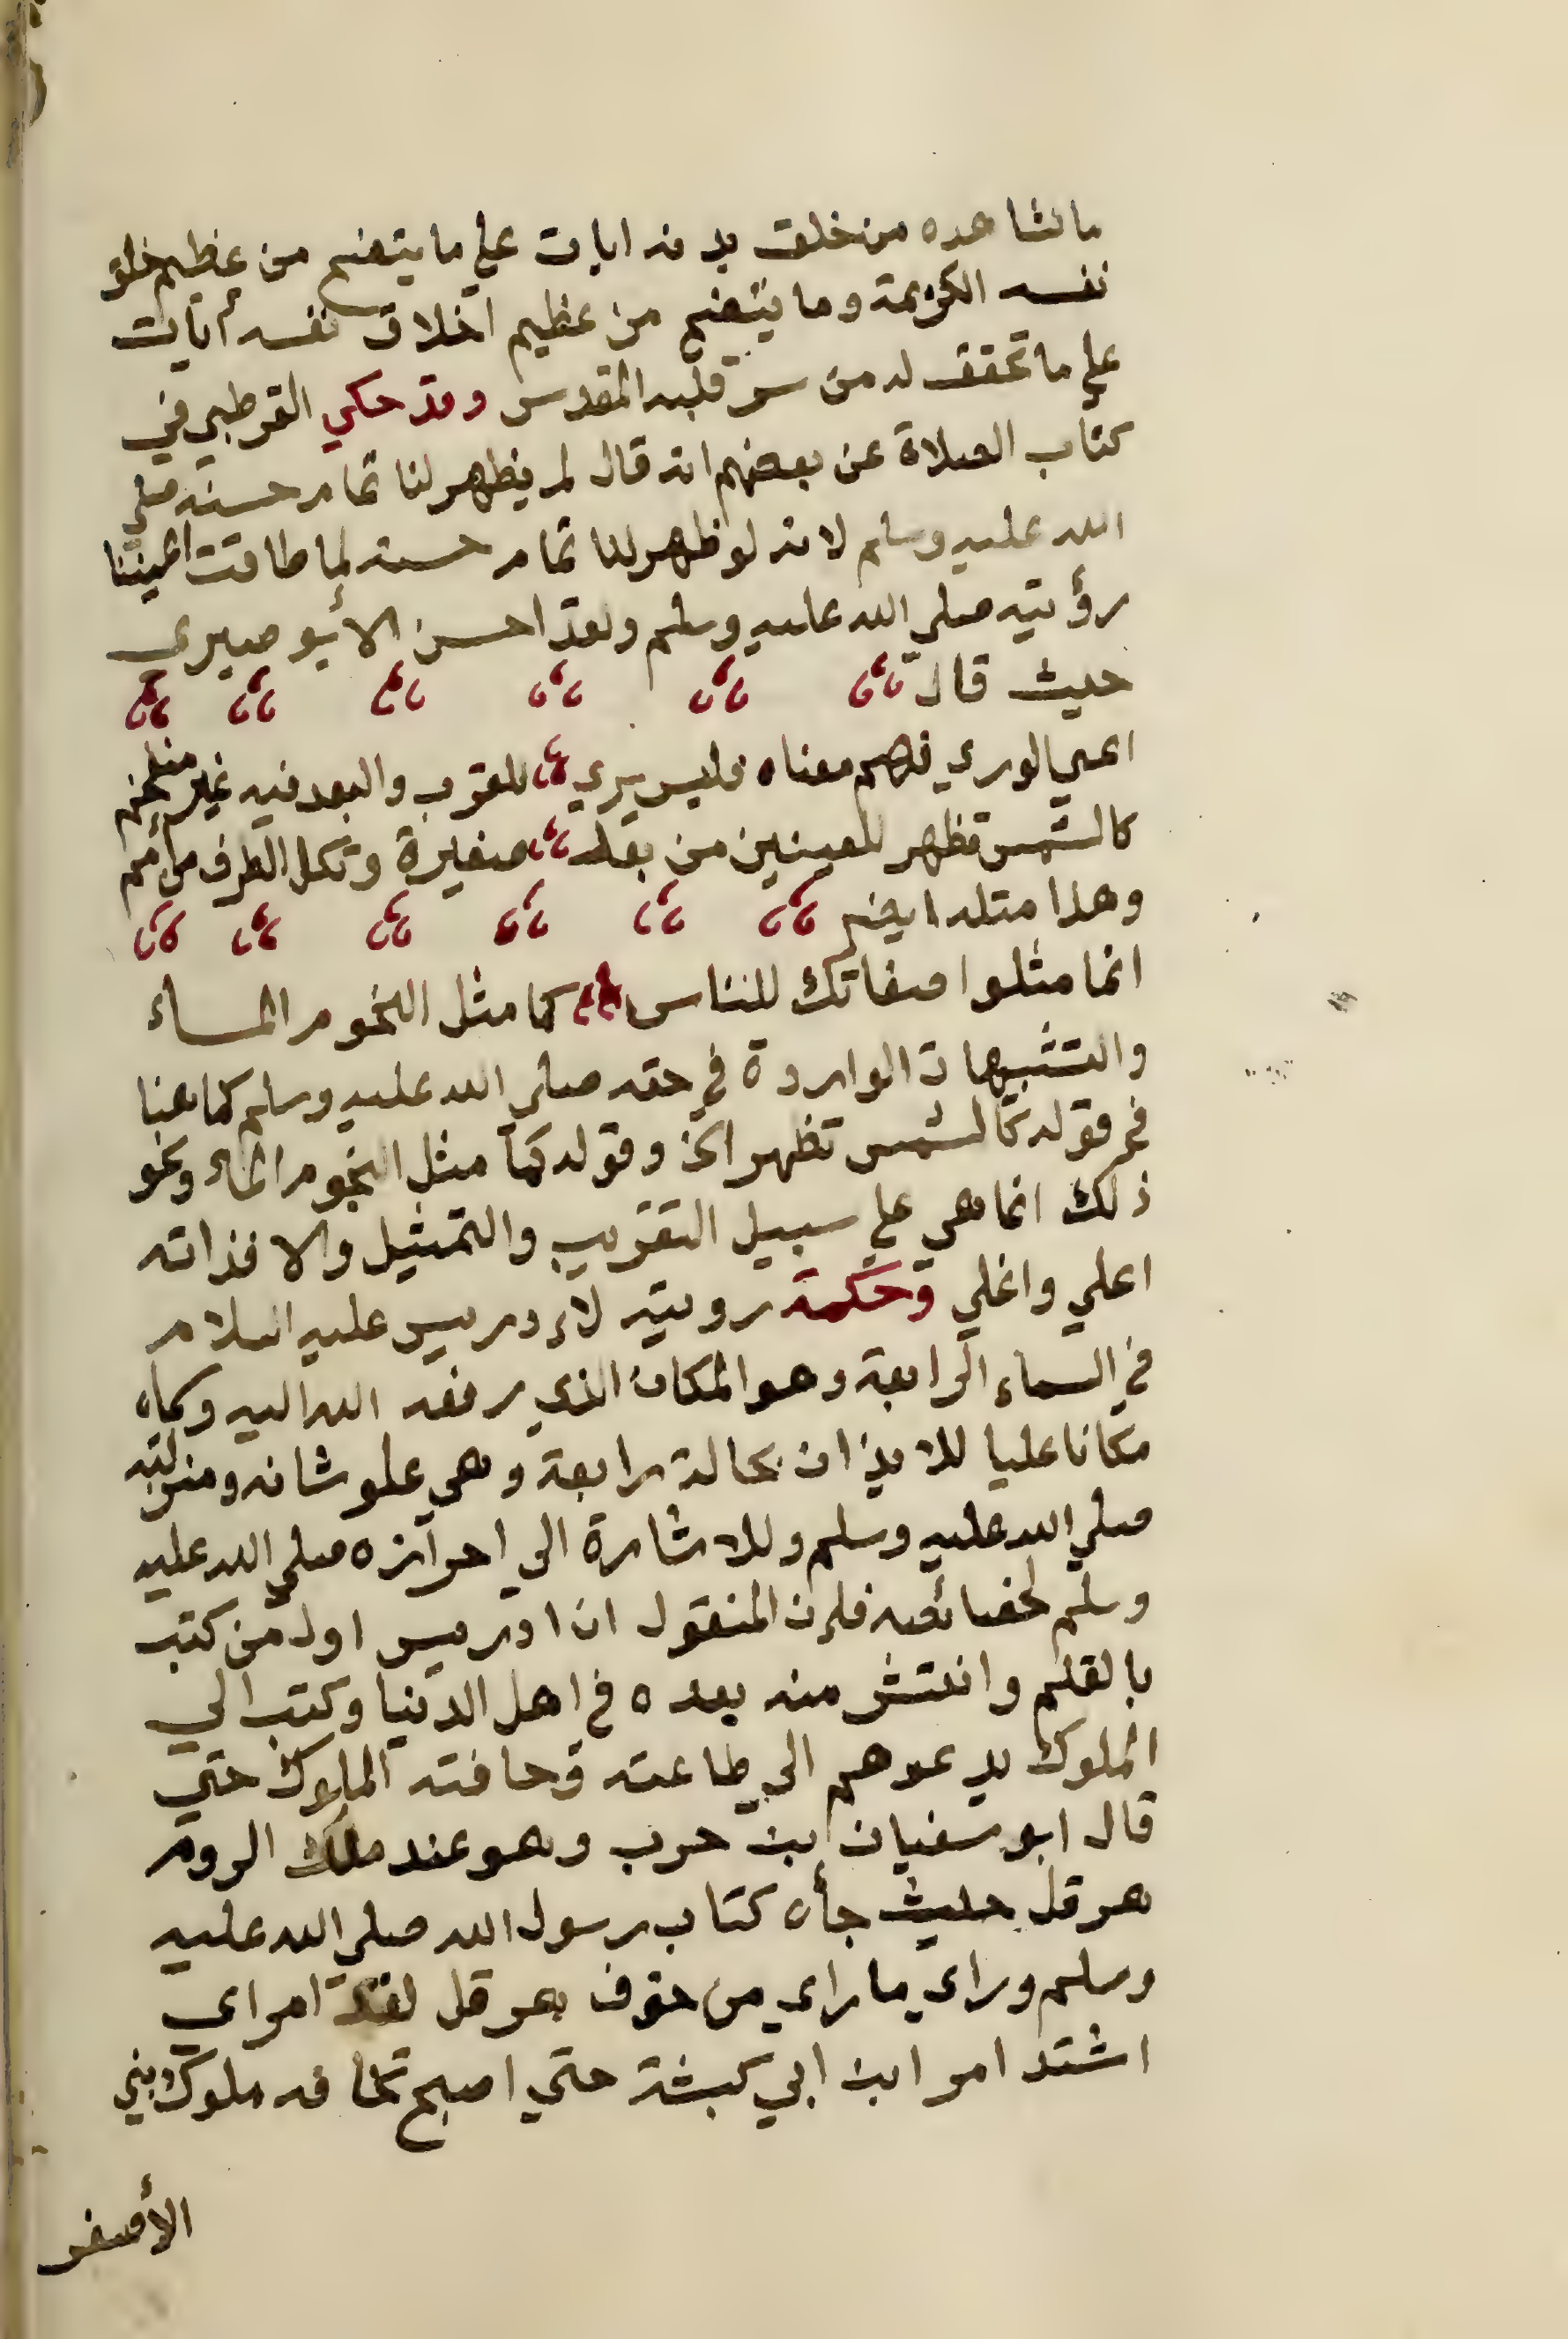 ما نشاهده من خلق بدنه ايات علي ما يتضح من عظيم خلق
نفسه الكريمة وما يتضح من عظيم اخلاق نفسه أيات
علي ما تحقق له من سر قلبه المقدس وقد حكي القرطبي في
كتاب الصلاة عن بعضهم انه قال لم يظهر لنا تمام حسنه صلي
الله عليه وسلم لانه لو ظهر لنا تمام حسنه لما طاقت اعيننا
رؤيته صلي الله عليه وسلم ولقد احسن الأبوصيري
حيث قال
اعيي الوري فهم معناه فليس يري للقرب والبعد فيه غير منفحم
كالشمس تظهر للعينين من بعد صغيرة وتكل الطرف من أمم
وهذا مثله ايضم
انما مثلوا صفاتك للناس كما مثل النجوم الماء
والتشبيهات الواردة في حقه صلي الله عليه وسلم كما هنا
في قوله كالشمس تظهر الخ وقوله كما مثل النجوم الماء ونحو
ذلك انما هي علي سبيل التقريب والتمثيل والا فذاته
اعلي واغلي وحكمة رويته لادريس عليه السلام
في السماء الرابعة وهو المكان الذي رفعه الله اليه وسماه
مكانا عليا للايذان بحالة رابعة وهي علو شانه ومنزلته
صلي الله عليه وسلم وللاشارة الي احرازه صلي الله عليه
وسلم لخصائصه فإن المنقول ان ادريس اول من كتب
بالقلم وانتشر منه بعده في اهل الدنيا وكتب الي
الملوك يدعوهم الي طاعته وخافته الملوك حتي
قال ابو سفيان ابن حرب وهو عند ملك الروم
هرقل حيث جأه كتاب رسول الله صلي الله عليه
وسلم وراي ما راي من خوف هرقل لقد امر اي
اشتد امر ابن ابي كبشة حتي اصبح تخافه ملوك بني
الأصفر